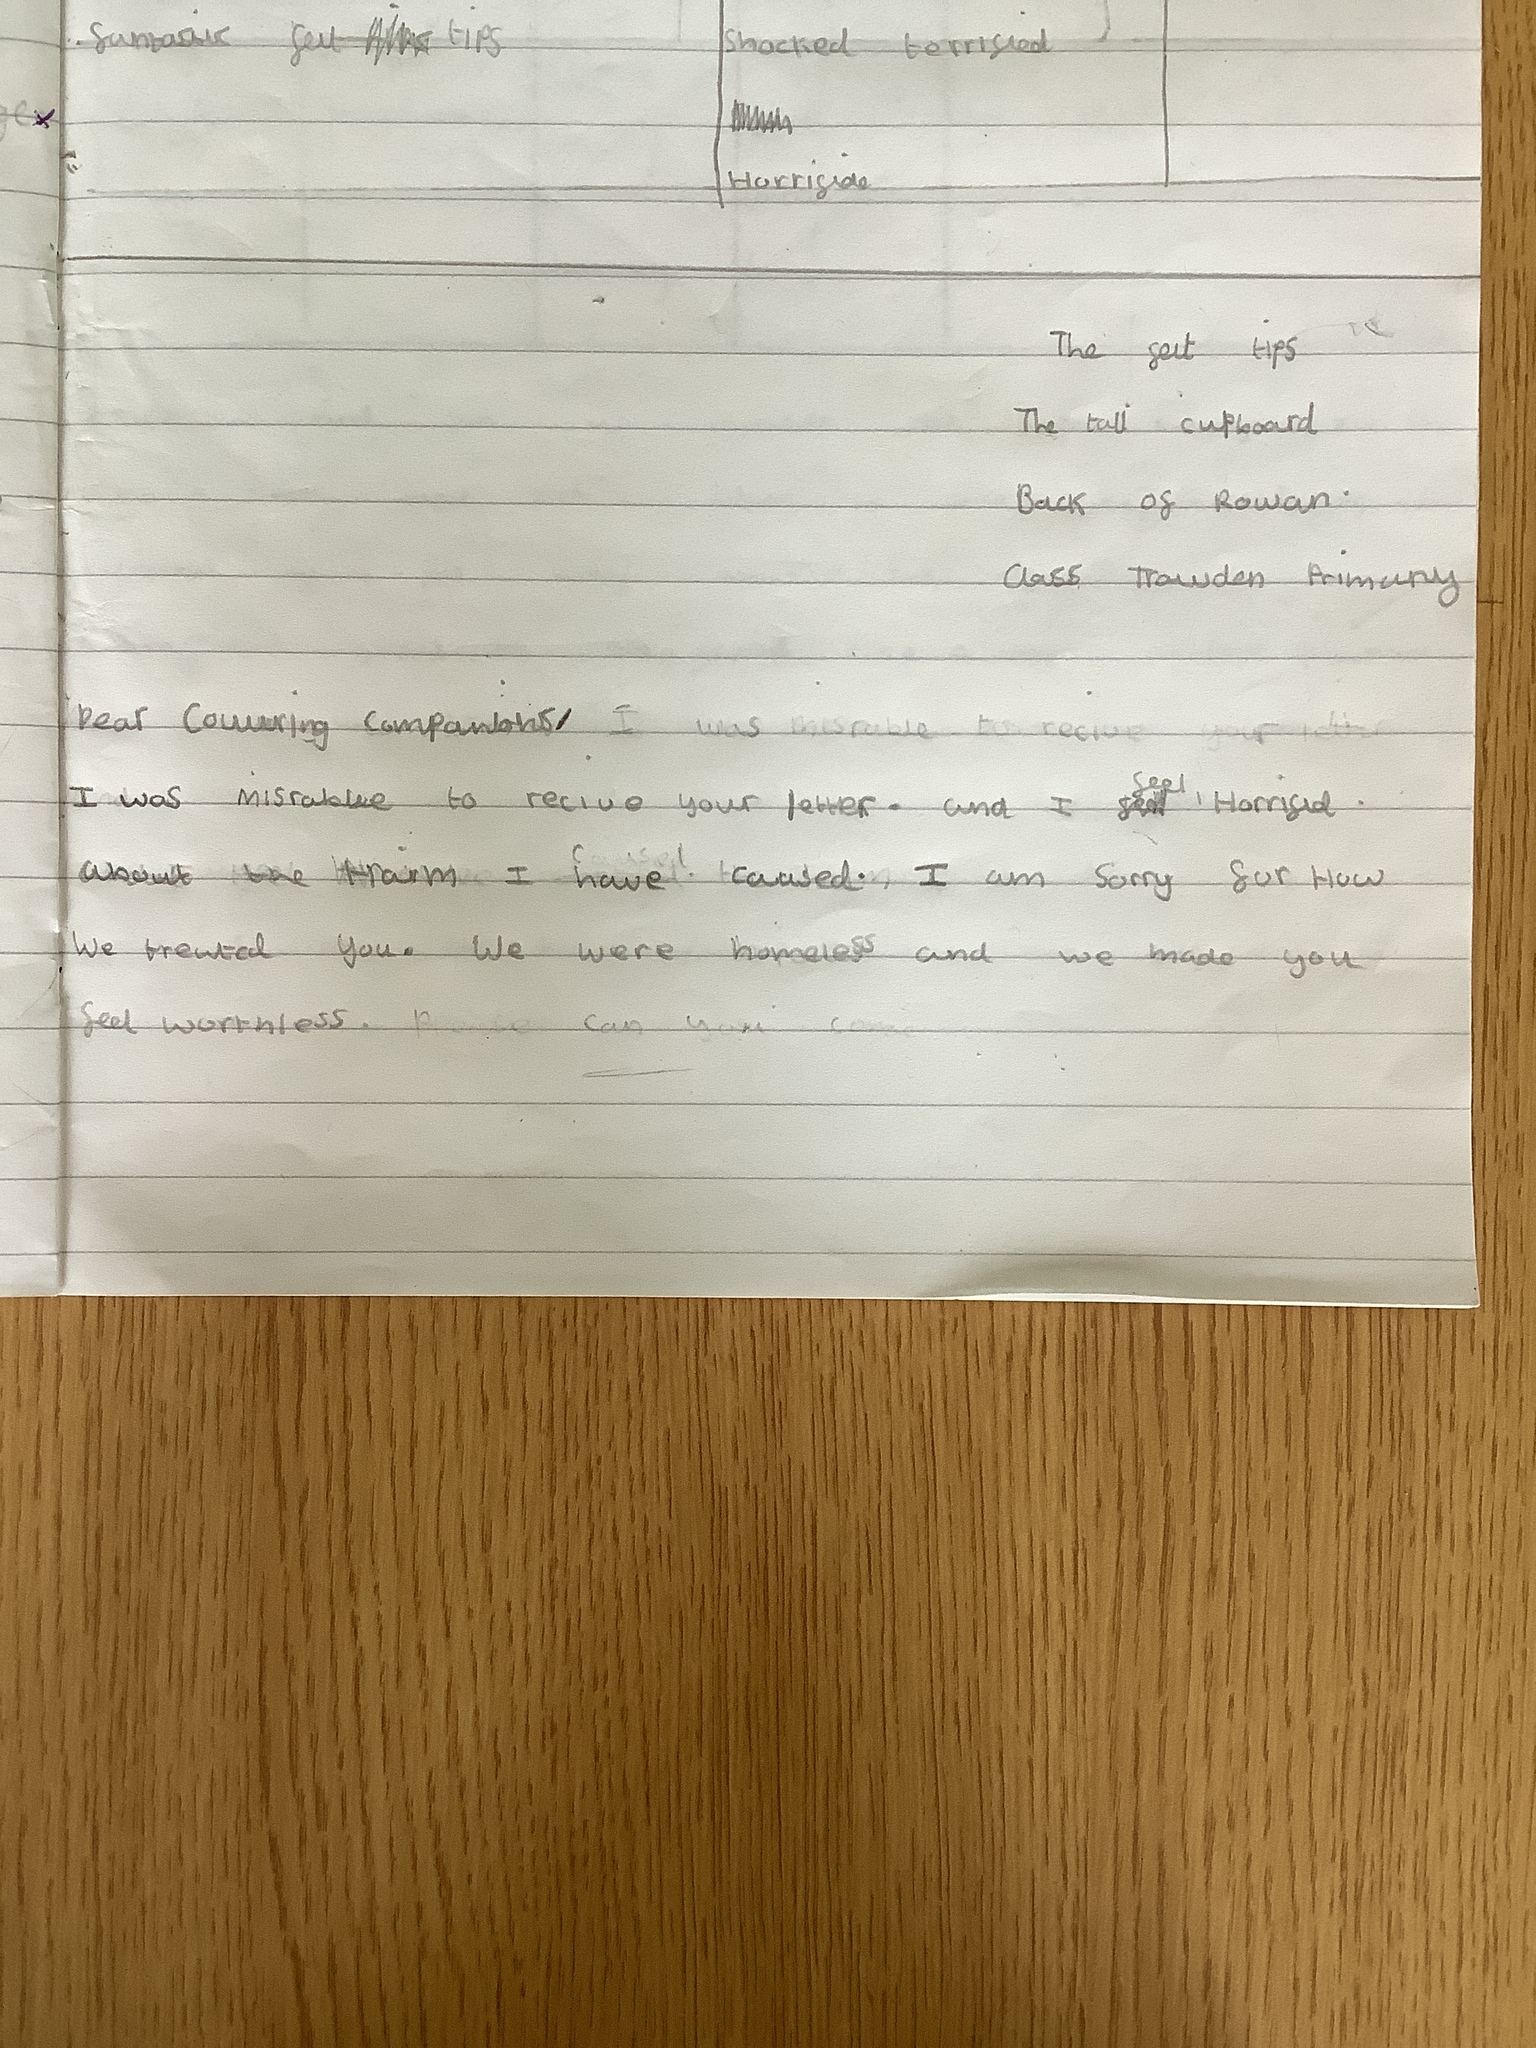 fantasic felt tips
Shocked terrified
Horrifide
The felt tips
The tall cupboard
Back of Rowan.
Class Trawden Primary
Dear Couwring companions, I was misrable to recive your letter
I was misrable to recive your letter. and I feel Horrifid.
about the Hairm I have caused. I am Sorry for How
We treated you. We were homeless and we made you
feel worthless. Please can you come